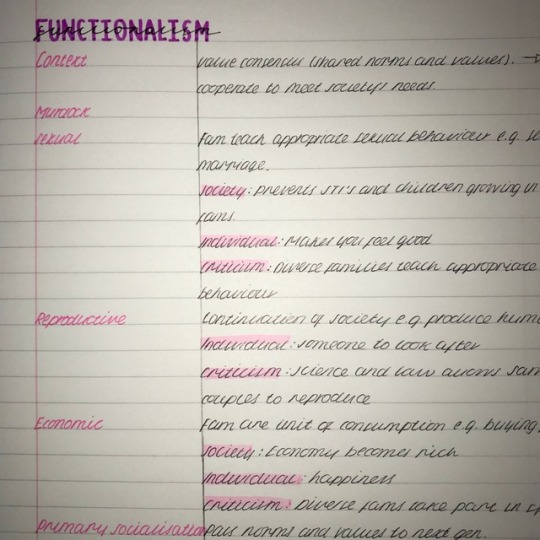 FUNCTIONALISM
Context value consensus (shared norms and values). →
cooperate to meet society's needs.
Murdock
Sexual Fam teach appropriate sexual behaviour e.g.
marriage.
Society: prevents STI's and children growing in
fams.
Individual: Makes you feel good
Criticism: Diverse families teach appropriate
behaviour
Reproductive Continuation of society e.g. produce
Individual: someone to look after
Criticism: science and law allows
couples to reproduce
Economic Fam are unit of consumption e.g. buying,
Society: Economy becomes rich
Individual: happiness
Criticism: Diverse fams take part in
Primary socialisation Pass norms and values to next gen.